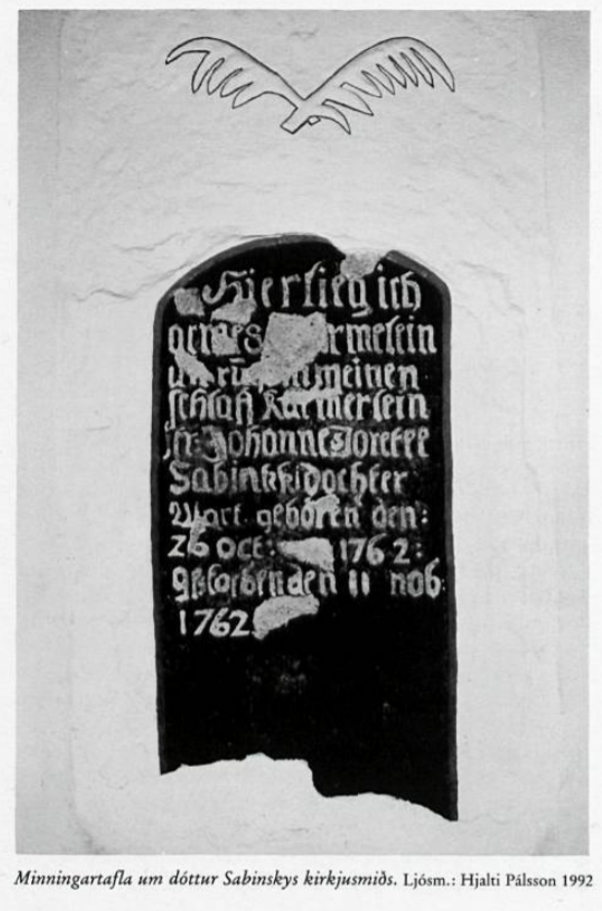 Hier lieg ich
armes rmelein
meinen
schlaff
Johannes
Sabinski dochter
Wart geboren den:
26 oct: 1762:
gestorben den 11 nob:
1762
Minningartafla um dóttur Sabinskys kirkjusmiðs. Ljósm.: Hjalti Pálsson 1992